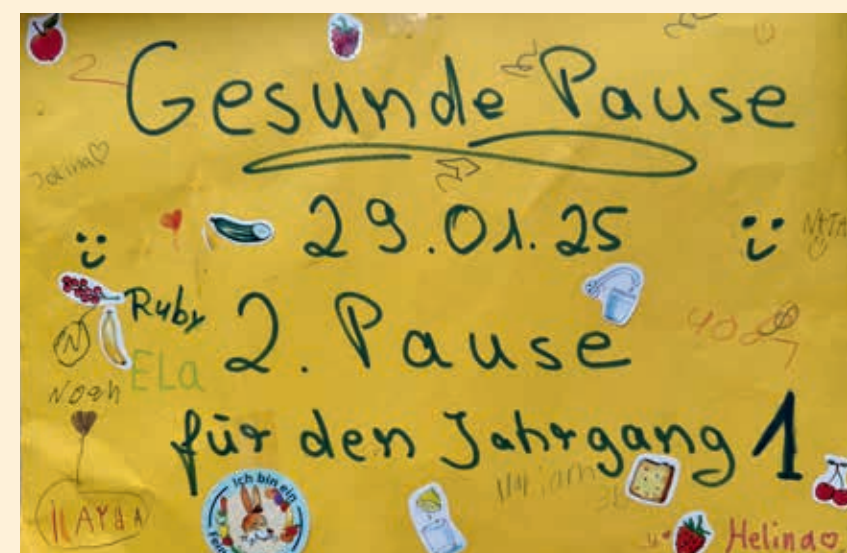 Gesunde Pause
Jolina
29.01.25
Ruby
2. Pause
ELa
Noah
für den Jahrgang 1
Miriam
ILAYDA
Ich bin ein
Helina